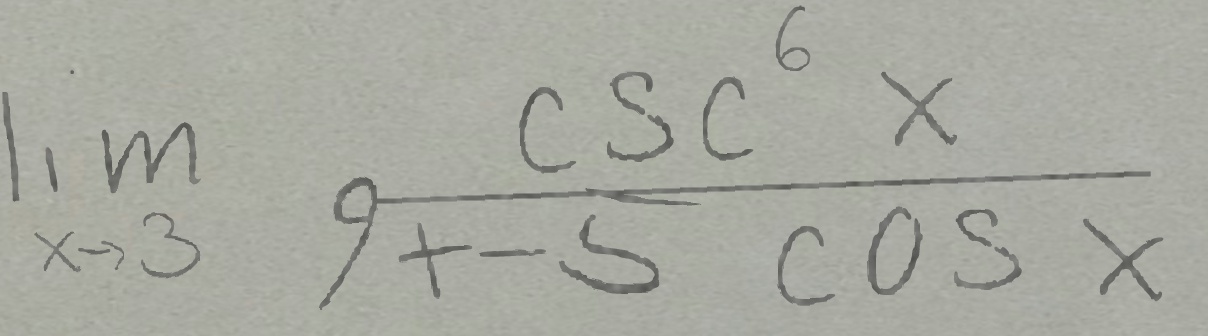 \lim_{x \to 3} \frac{\csc^6 x}{9 + -5 \cos x}